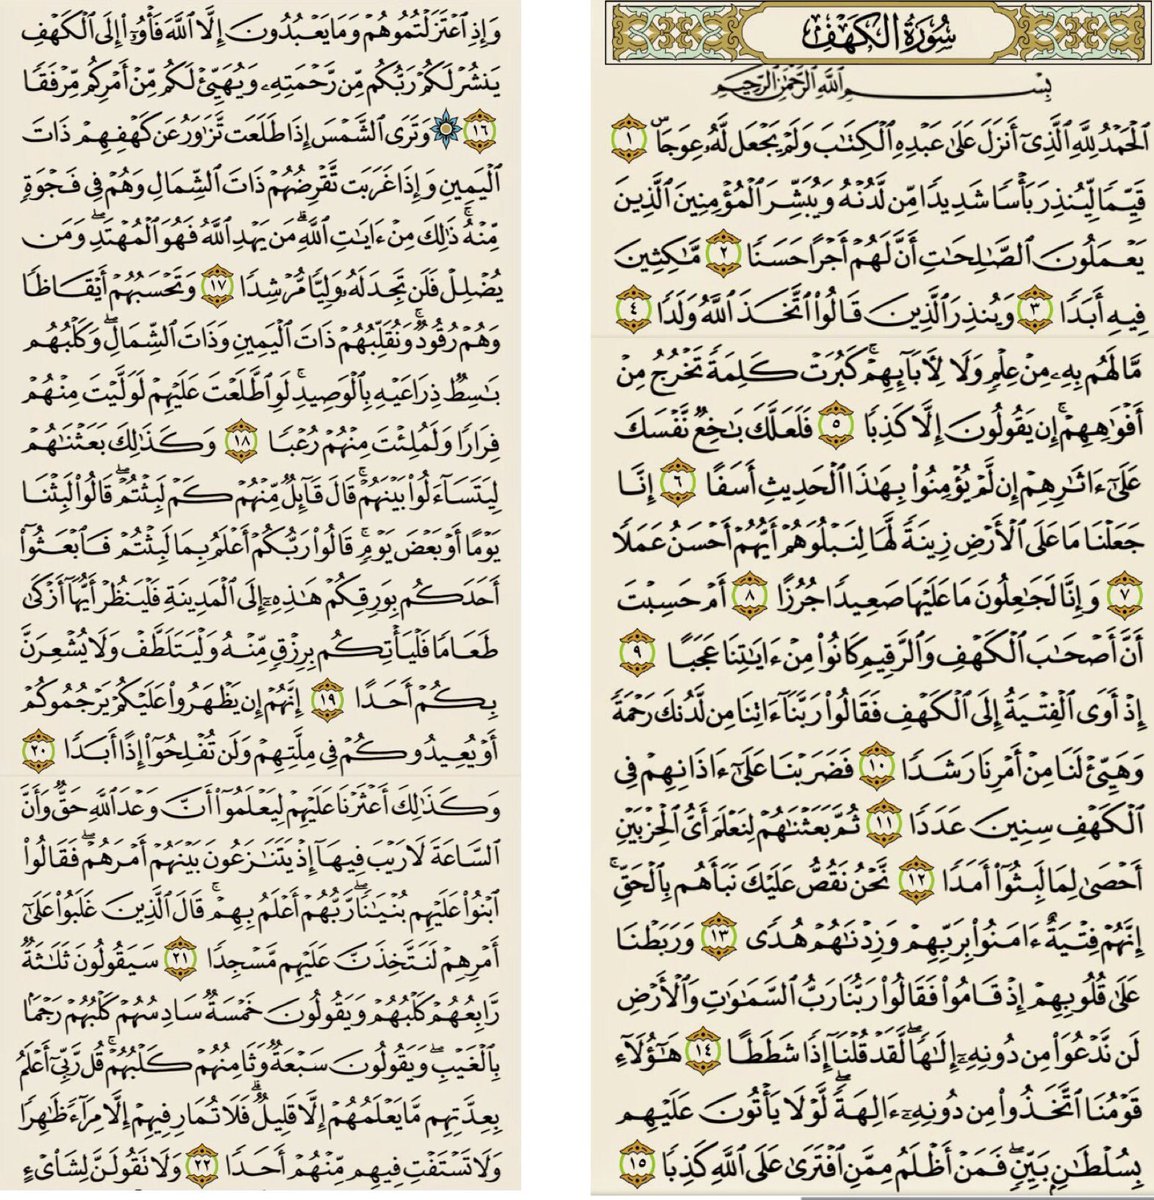 سُورَةُ الكَهۡفِ
بِسۡمِ ٱللَّهِ ٱلرَّحۡمَٰنِ ٱلرَّحِيمِ
ٱلۡحَمۡدُ لِلَّهِ ٱلَّذِيٓ أَنزَلَ عَلَىٰ عَبۡدِهِ ٱلۡكِتَٰبَ وَلَمۡ يَجۡعَل لَّهُۥ عِوَجَاۜ ١
قَيِّمٗا لِّيُنذِرَ بَأۡسٗا شَدِيدٗا مِّن لَّدُنۡهُ وَيُبَشِّرَ ٱلۡمُؤۡمِنِينَ ٱلَّذِينَ
يَعۡمَلُونَ ٱلصَّٰلِحَٰتِ أَنَّ لَهُمۡ أَجۡرًا حَسَنٗا ٢ مَّٰكِثِينَ
فِيهِ أَبَدٗا ٣ وَيُنذِرَ ٱلَّذِينَ قَالُواْ ٱتَّخَذَ ٱللَّهُ وَلَدٗا ٤
مَّا لَهُم بِهِۦ مِنۡ عِلۡمٖ وَلَا لِأٓبَآئِهِمۡۚ كَبُرَتۡ كَلِمَةٗ تَخۡرُجُ مِنۡ
أَفۡوَٰهِهِمۡۚ إِن يَقُولُونَ إِلَّا كَذِبٗا ٥ فَلَعَلَّكَ بَٰخِعٞ نَّفۡسَكَ
عَلَىٰٓ ءَاثَٰرِهِمۡ إِن لَّمۡ يُؤۡمِنُواْ بِهَٰذَا ٱلۡحَدِيثِ أَسَفًا ٦ إِنَّا
جَعَلۡنَا مَا عَلَى ٱلۡأَرۡضِ زِينَةٗ لَّهَا لِنَبۡلُوَهُمۡ أَيُّهُمۡ أَحۡسَنُ عَمَلٗا
٧ وَإِنَّا لَجَٰعِلُونَ مَا عَلَيۡهَا صَعِيدٗا جُرُزًا ٨ أَمۡ حَسِبۡتَ
أَنَّ أَصۡحَٰبَ ٱلۡكَهۡفِ وَٱلرَّقِيمِ كَانُواْ مِنۡ ءَايَٰتِنَا عَجَبًا ٩
إِذۡ أَوَى ٱلۡفِتۡيَةُ إِلَى ٱلۡكَهۡفِ فَقَالُواْ رَبَّنَآ ءَاتِنَا مِن لَّدُنكَ رَحۡمَةٗ
وَهَيِّئۡ لَنَا مِنۡ أَمۡرِنَا رَشَدٗا ١٠ فَضَرَبۡنَا عَلَىٰٓ ءَاذَانِهِمۡ فِي
ٱلۡكَهۡفِ سِنِينَ عَدَدٗا ١١ ثُمَّ بَعَثۡنَٰهُمۡ لِنَعۡلَمَ أَيُّ ٱلۡحِزۡبَيۡنِ
أَحۡصَىٰ لِمَا لَبِثُوٓاْ أَمَدٗا ١٢ نَّحۡنُ نَقُصُّ عَلَيۡكَ نَبَأَهُم بِٱلۡحَقِّۚ
إِنَّهُمۡ فِتۡيَةٌ ءَامَنُواْ بِرَبِّهِمۡ وَزِدۡنَٰهُمۡ هُدٗى ١٣ وَرَبَطۡنَا
عَلَىٰ قُلُوبِهِمۡ إِذۡ قَامُواْ فَقَالُواْ رَبُّنَا رَبُّ ٱلسَّمَٰوَٰتِ وَٱلۡأَرۡضِ
لَن نَّدۡعُوَاْ مِن دُونِهِۦٓ إِلَٰهٗاۖ لَّقَدۡ قُلۡنَآ إِذٗا شَطَطًا ١٤ هَٰٓؤُلَآءِ
قَوۡمُنَا ٱتَّخَذُواْ مِن دُونِهِۦٓ ءَالِهَةٗۖ لَّوۡلَا يَأۡتُونَ عَلَيۡهِم
بِسُلۡطَٰنِۭ بَيِّنٖۖ فَمَنۡ أَظۡلَمُ مِمَّنِ ٱفۡتَرَىٰ عَلَى ٱللَّهِ كَذِبٗا ١٥
وَإِذِ ٱعۡتَزَلۡتُمُوهُمۡ وَمَا يَعۡبُدُونَ إِلَّا ٱللَّهَ فَأۡوُۥٓاْ إِلَى ٱلۡكَهۡفِ
يَنشُرۡ لَكُمۡ رَبُّكُم مِّن رَّحۡمَتِهِۦ وَيُهَيِّئۡ لَكُم مِّنۡ أَمۡرِكُم مِّرۡفَقٗا
١٦ ۞ وَتَرَى ٱلشَّمۡسَ إِذَا طَلَعَت تَّزَٰوَرُ عَن كَهۡفِهِمۡ ذَاتَ
ٱلۡيَمِينِ وَإِذَا غَرَبَت تَّقۡرِضُهُمۡ ذَاتَ ٱلشِّمَالِ وَهُمۡ فِي فَجۡوَةٖ
مِّنۡهُۚ ذَٰلِكَ مِنۡ ءَايَٰتِ ٱللَّهِۗ مَن يَهۡدِ ٱللَّهُ فَهُوَ ٱلۡمُهۡتَدِۖ وَمَن
يُضۡلِلۡ فَلَن تَجِدَ لَهُۥ وَلِيّٗا مُّرۡشِدٗا ١٧ وَتَحۡسَبُهُمۡ أَيۡقَاظٗا
وَهُمۡ رُقُودٞۚ وَنُقَلِّبُهُمۡ ذَاتَ ٱلۡيَمِينِ وَذَاتَ ٱلشِّمَالِۖ وَكَلۡبُهُم
بَٰسِطٞ ذِرَاعَيۡهِ بِٱلۡوَصِيدِۚ لَوِ ٱطَّلَعۡتَ عَلَيۡهِمۡ لَوَلَّيۡتَ مِنۡهُمۡ
فِرَارٗا وَلَمُلِئۡتَ مِنۡهُمۡ رُعۡبٗا ١٨ وَكَذَٰلِكَ بَعَثۡنَٰهُمۡ
لِيَتَسَآءَلُواْ بَيۡنَهُمۡۚ قَالَ قَآئِلٞ مِّنۡهُمۡ كَمۡ لَبِثۡتُمۡۖ قَالُواْ لَبِثۡنَا
يَوۡمًا أَوۡ بَعۡضَ يَوۡمٖۚ قَالُواْ رَبُّكُمۡ أَعۡلَمُ بِمَا لَبِثۡتُمۡ فَٱبۡعَثُوٓاْ
أَحَدَكُم بِوَرِقِكُمۡ هَٰذِهِۦٓ إِلَى ٱلۡمَدِينَةِ فَلۡيَنظُرۡ أَيُّهَآ أَزۡكَىٰ
طَعَامٗا فَلۡيَأۡتِكُم بِرِزۡقٖ مِّنۡهُ وَلۡيَتَلَطَّفۡ وَلَا يُشۡعِرَنَّ
بِكُمۡ أَحَدًا ١٩ إِنَّهُمۡ إِن يَظۡهَرُواْ عَلَيۡكُمۡ يَرۡجُمُوكُمۡ
أَوۡ يُعِيدُوكُمۡ فِي مِلَّتِهِمۡ وَلَن تُفۡلِحُوٓاْ إِذًا أَبَدٗا ٢٠
وَكَذَٰلِكَ أَعۡثَرۡنَا عَلَيۡهِمۡ لِيَعۡلَمُوٓاْ أَنَّ وَعۡدَ ٱللَّهِ حَقّٞ وَأَنَّ
ٱلسَّاعَةَ لَا رَيۡبَ فِيهَآ إِذۡ يَتَنَٰزَعُونَ بَيۡنَهُمۡ أَمۡرَهُمۡۖ فَقَالُواْ
ٱبۡنُواْ عَلَيۡهِم بُنۡيَٰنٗاۖ رَّبُّهُمۡ أَعۡلَمُ بِهِمۡۚ قَالَ ٱلَّذِينَ غَلَبُواْ عَلَىٰٓ
أَمۡرِهِمۡ لَنَتَّخِذَنَّ عَلَيۡهِم مَّسۡجِدٗا ٢١ سَيَقُولُونَ ثَلَٰثَةٞ
رَّابِعُهُمۡ كَلۡبُهُمۡ وَيَقُولُونَ خَمۡسَةٞ سَادِسُهُمۡ كَلۡبُهُمۡ رَجۡمَۢا
بِٱلۡغَيۡبِۖ وَيَقُولُونَ سَبۡعَةٞ وَثَامِنُهُمۡ كَلۡبُهُمۡۚ قُل رَّبِّيٓ أَعۡلَمُ
بِعِدَّتِهِم مَّا يَعۡلَمُهُمۡ إِلَّا قَلِيلٞۗ فَلَا تُمَارِ فِيهِمۡ إِلَّا مِرَآءٗ ظَٰهِرٗا
وَلَا تَسۡتَفۡتِ فِيهِم مِّنۡهُمۡ أَحَدٗا ٢٢ وَلَا تَقُولَنَّ لِشَاْيۡءٍ